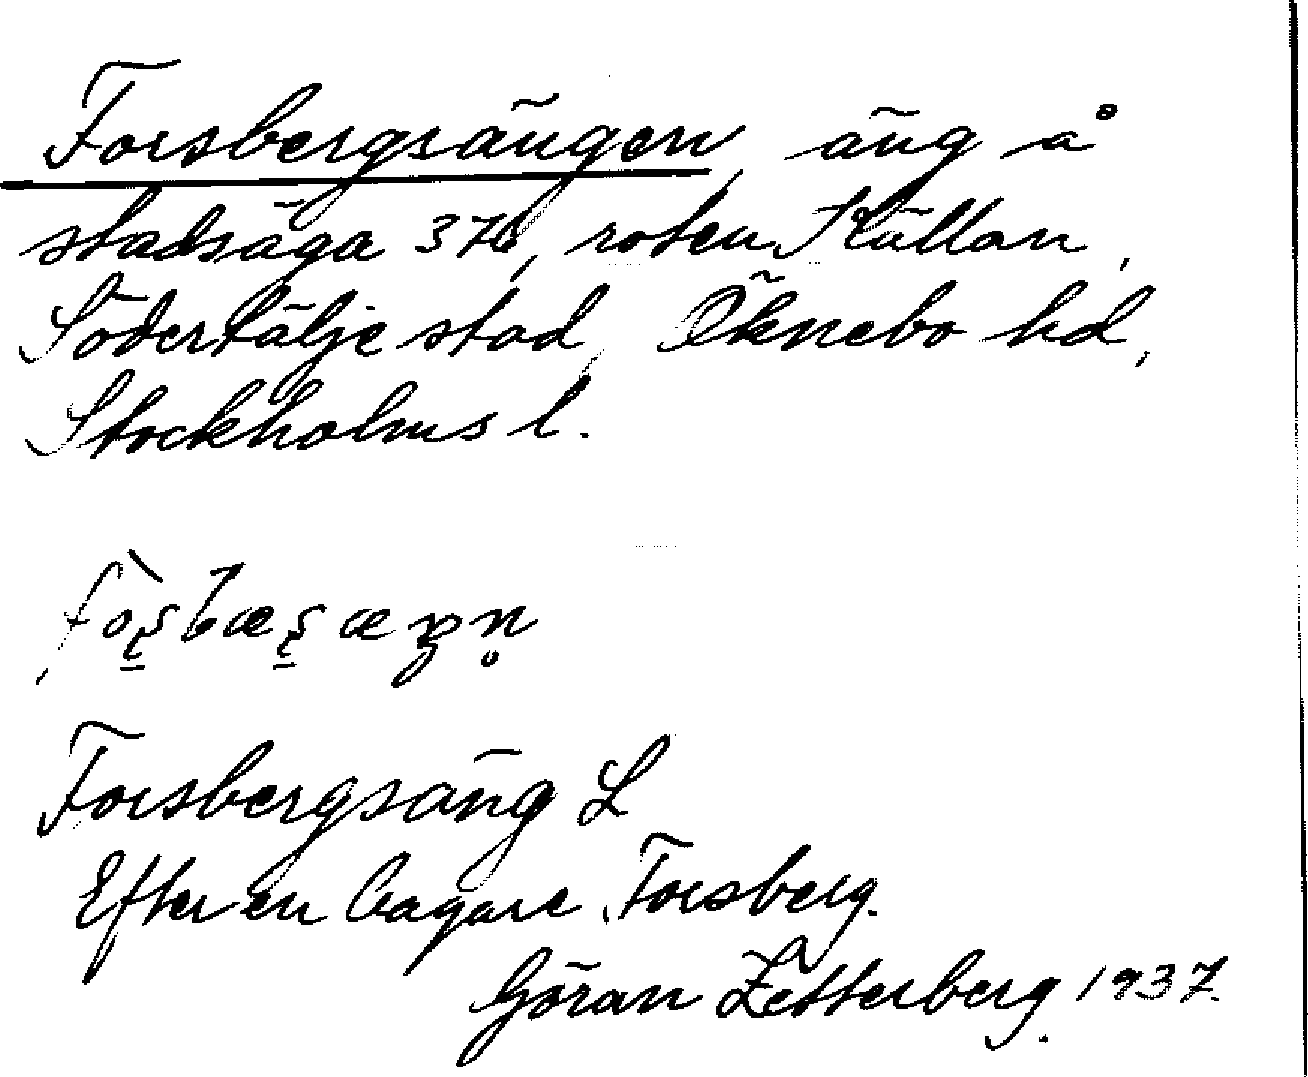 Forsbergsängen, äng å
stadsäga 376, roten Källan,
Södertälje stad, Öknebo hd,
Stockholms l.
Forsbergsäng L
Efter en bagare Forsberg.
Göran Zetterberg. 1937.